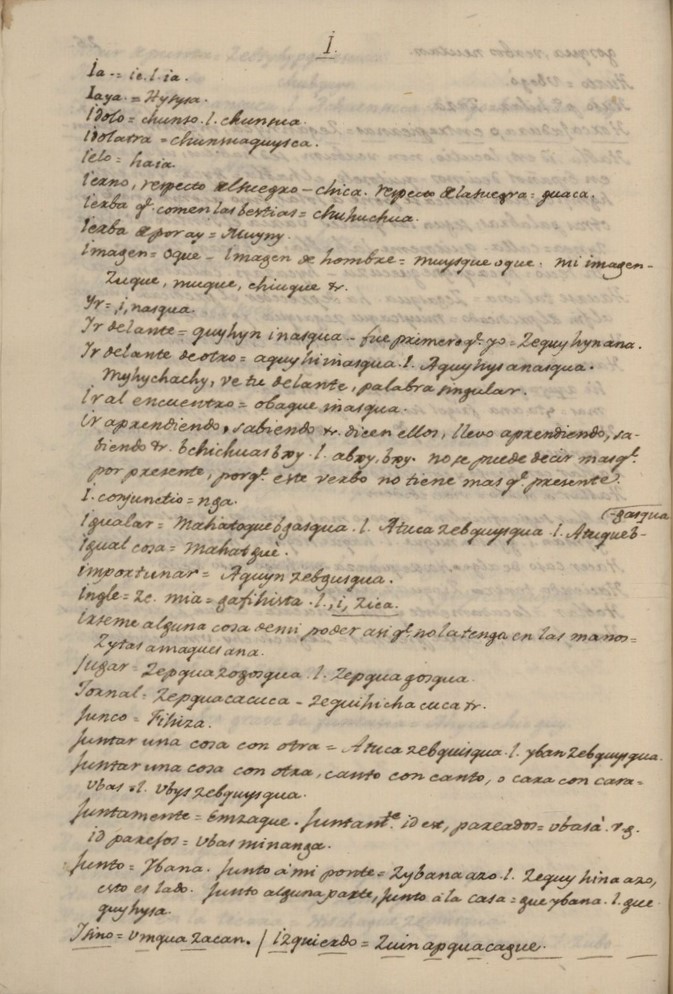 I.
Ia = ie. l. ia.
Iaya = Hysysa.
idolo = chunso. l. chunsua.
idolatra = chunsuaguysca.
ielo = haia.
ierno, respecto del suegro – chica. respecto de la suegra = guaca.
ierba q.e comen las bestias = chuhuchua.
ierba de por ay = Muyny.
imagen = oque – imagen de hombre = muysque oque. mi imagen –
zuque, muque, chiuque &.
Yr = i, nasqua.
Ir delante = quyhyn inasqua – fue primero q.e yo = zequyhynana.
Ir delante de otro = aquyhinasqua. l. Aquyhysanasqua.
Myhychachy, ve tu delante, palabra singular.
ir al encuentro = obaque inasqua.
ir aprendiendo, sabiendo &. dicen ellos, llevo aprendiendo, sa-
biendo &. bchichuas bxy. l. abxy, bxy. no se puede decir mas q.e
por presente, porq.e este verbo no tiene mas q.e presente.
I. conjunctio = nga.
(-gasqua
igualar = Mahatoque bgasqua. l. Atuca zebquysqua. l. Atuque b-
igual cosa = Mahatguè.
importunar = Aquyn zebgusqua.
ingle = ze. mia = gafihista. l., i, zica.
irseme alguna cosa de mi poder asi q.e no la tengo en las manos =
zytas amaques ana.
Jugar = zepquazogosqua. l. zepquagosqua.
Jornal = zepquacacuca – zequihichacuca &.
Junco = Fihiza.
Juntar una cosa con otra = Atuca zebquisqua. l. yban zebquysqua.
Juntar una cosa con otra, canto con canto, o cara con cara =
vbas. l. vbys zebquysqua.
Juntamente = Emzaque. Juntam.te id est, pareados = vbasà. v.g.
id parejos = vbas minanga.
Junto = Ybana. Junto à mi ponte = zybana azo. l. zequyhina azo,
esto es lado. Junto alguna parte, junto à la casa = gue ybana. l. gue
quyhysa.
Isino = vmqua zacan. / izquierdo = zuin apquacague.